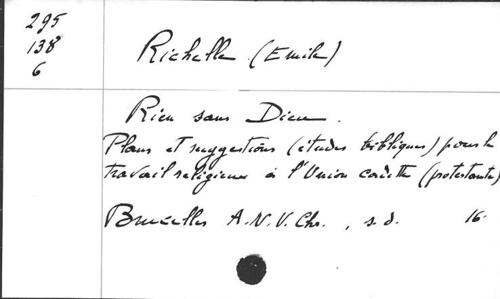 295
138
6
Richelle (Emile)
Rien sans Dieu.
Plans et suggestions (études bibliques) pour le
travail religieux à l'Union cadette (protestante)
Bruxelles A.N.V.Chr., s.d. 16°